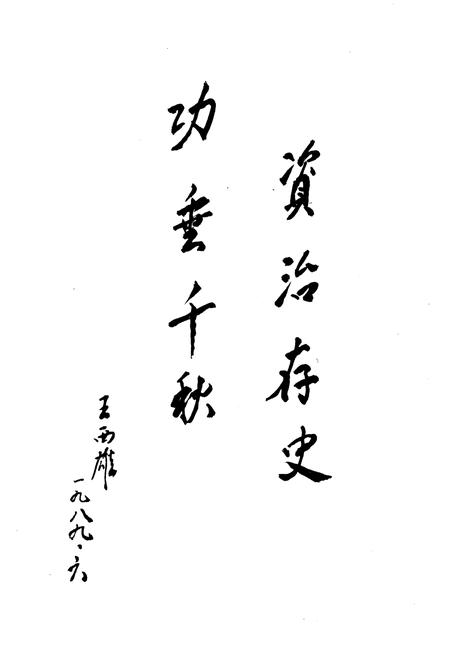 資治存史
功垂千秋
王西雄
一九八九·六